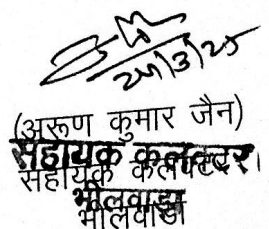 24/3/25
(अरूण कुमार जैन)
सहायक कलक्टर
सहायक कलेक्टर।
भीलवाड़ा
भीलवाडा